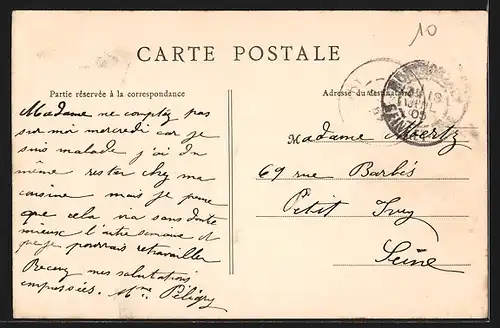 10
CARTE POSTALE
Partie réservée à la correspondance
Adresse du destinataire
Madame ne comptez pas
sur moi mercredi car je
suis malade j'ai du
même rester chez ma
cuisine mais je pense
que cela ira sans doute
mieux l'autre semaine et
que je pourrais retravailler
Recevez mes salutations
empressées. Mme Péligry
Madame
69 rue Barbès
Petit Ivry
Seine